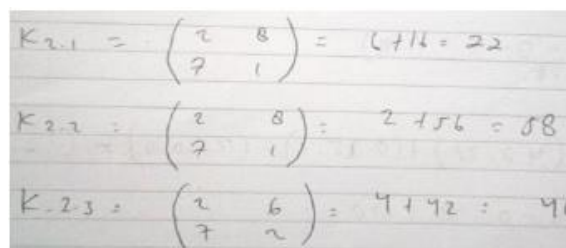 K 2.1 = (2 8 7 1) = 6 + 16 = 22
K 2.2 = (2 8 7 1) = 2 + 56 = 58
K.2.3 = (2 6 7 2) = 4 + 42 =